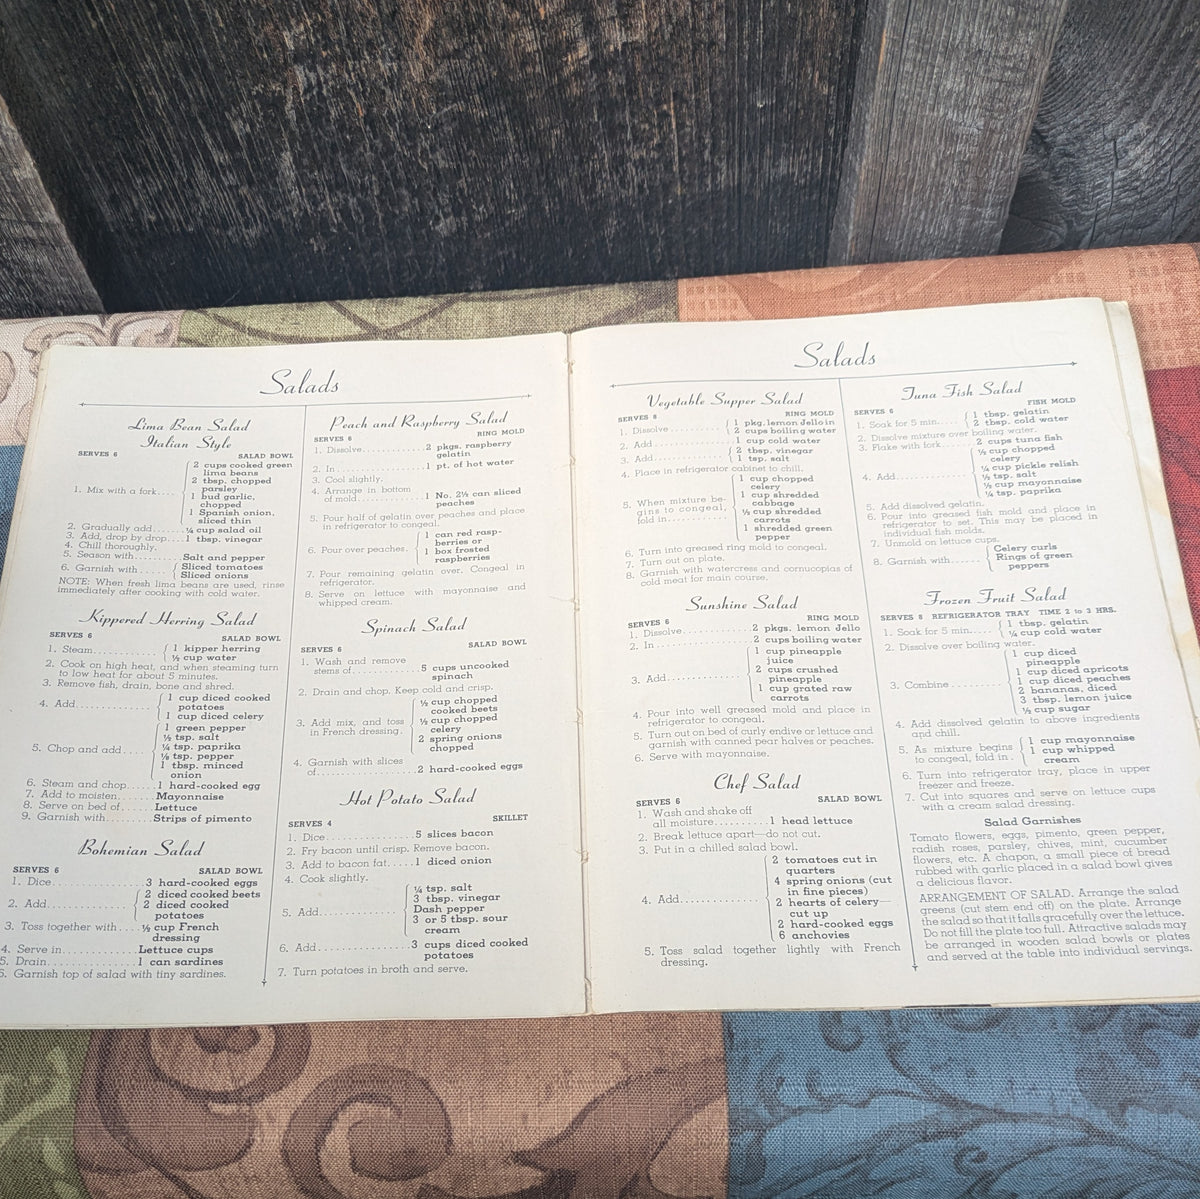 Salads
Lima Bean Salad
Italian Style
SERVES 6 SALAD BOWL
1. Mix with a fork.... 2 cups cooked green
lima beans
2 tbsp. chopped
parsley
1 bud garlic,
chopped
1 Spanish onion,
sliced thin
2. Gradually add......¼ cup salad oil
3. Add, drop by drop....1 tbsp. vinegar
4. Chill thoroughly.
5. Season with..........Salt and pepper
6. Garnish with...... Sliced tomatoes
Sliced onions
NOTE: When fresh lima beans are used, rinse
immediately after cooking with cold water.
Kippered Herring Salad
SERVES 6 SALAD BOWL
1. Steam............. 1 kipper herring
½ cup water
2. Cook on high heat, and when steaming turn
to low heat for about 5 minutes.
3. Remove fish, drain, bone and shred.
4. Add............... 1 cup diced cooked
potatoes
1 cup diced celery
5. Chop and add.... 1 green pepper
½ tsp. salt
¼ tsp. paprika
⅛ tsp. pepper
1 tbsp. minced
onion
6. Steam and chop.......1 hard-cooked egg
7. Add to moisten.......Mayonnaise
8. Serve on bed of......Lettuce
9. Garnish with.........Strips of pimento
Bohemian Salad
SERVES 6 SALAD BOWL
1. Dice.................3 hard-cooked eggs
2. Add............ 2 diced cooked beets
2 diced cooked
potatoes
3. Toss together with....½ cup French
dressing
4. Serve in..............Lettuce cups
5. Drain.................1 can sardines
6. Garnish top of salad with tiny sardines.
Peach and Raspberry Salad
SERVES 6 RING MOLD
1. Dissolve.............2 pkgs. raspberry
gelatin
2. In...................1 pt. of hot water
3. Cool slightly.
4. Arrange in bottom
of mold..............1 No. 2½ can sliced
peaches
5. Pour half of gelatin over peaches and place
in refrigerator to congeal.
6. Pour over peaches. 1 can red rasp-
berries or
1 box frosted
raspberries
7. Pour remaining gelatin over. Congeal in
refrigerator.
8. Serve on lettuce with mayonnaise and
whipped cream.
Spinach Salad
SERVES 6 SALAD BOWL
1. Wash and remove
stems of.............5 cups uncooked
spinach
2. Drain and chop. Keep cold and crisp.
3. Add mix, and toss
in French dressing. ½ cup chopped
cooked beets
½ cup chopped
celery
2 spring onions
chopped
4. Garnish with slices
of...................2 hard-cooked eggs
Hot Potato Salad
SERVES 4 SKILLET
1. Dice.................5 slices bacon
2. Fry bacon until crisp. Remove bacon.
3. Add to bacon fat.....1 diced onion
4. Cook slightly.
5. Add.............. ¼ tsp. salt
3 tbsp. vinegar
Dash pepper
3 or 5 tbsp. sour
cream
6. Add..................3 cups diced cooked
potatoes
7. Turn potatoes in broth and serve.
Salads
Vegetable Supper Salad
SERVES 8 RING MOLD
1. Dissolve............ 1 pkg. lemon jello in
2 cups boiling water
2. Add..................1 cup cold water
3. Add................. 2 tbsp. vinegar
1 tsp. salt
4. Place in refrigerator cabinet to chill.
5. When mixture be-
gins to congeal,
fold in............. 1 cup chopped
celery
1 cup shredded
cabbage
½ cup shredded
carrots
1 shredded green
pepper
6. Turn into greased ring mold to congeal.
7. Turn out on plate.
8. Garnish with watercress and cornucopias of
cold meat for main course.
Sunshine Salad
SERVES 6 RING MOLD
1. Dissolve.............2 pkgs. lemon Jello
2. In...................2 cups boiling water
3. Add............... 1 cup pineapple
juice
2 cups crushed
pineapple
1 cup grated raw
carrots
4. Pour into well greased mold and place in
refrigerator to congeal.
5. Turn out on bed of curly endive or lettuce and
garnish with canned pear halves or peaches.
6. Serve with mayonnaise.
Chef Salad
SERVES 6 SALAD BOWL
1. Wash and shake off
all moisture.........1 head lettuce
2. Break lettuce apart—do not cut.
3. Put in a chilled salad bowl.
4. Add............... 2 tomatoes cut in
quarters
4 spring onions (cut
in fine pieces)
2 hearts of celery—
cut up
2 hard-cooked eggs
6 anchovies
5. Toss salad together lightly with French
dressing.
Tuna Fish Salad
SERVES 6 FISH MOLD
1. Soak for 5 min..... 1 tbsp. gelatin
2 tbsp. cold water
2. Dissolve mixture over boiling water.
3. Flake with fork......2 cups tuna fish
4. Add............... ½ cup chopped
celery
¼ cup pickle relish
½ tsp. salt
½ cup mayonnaise
¼ tsp. paprika
5. Add dissolved gelatin.
6. Pour into greased fish mold and place in
refrigerator to set. This may be placed in
individual fish molds.
7. Unmold on lettuce cups.
8. Garnish with...... Celery curls
Rings of green
peppers
Frozen Fruit Salad
SERVES 8 REFRIGERATOR TRAY TIME 2 to 3 HRS.
1. Soak for 5 min..... 1 tbsp. gelatin
¼ cup cold water
2. Dissolve over boiling water.
3. Combine........... 1 cup diced
pineapple
1 cup diced apricots
1 cup diced peaches
2 bananas, diced
3 tbsp. lemon juice
½ cup sugar
4. Add dissolved gelatin to above ingredients
and chill.
5. As mixture begins
to congeal, fold in. 1 cup mayonnaise
1 cup whipped
cream
6. Turn into refrigerator tray, place in upper
freezer and freeze.
7. Cut into squares and serve on lettuce cups
with a cream salad dressing.
Salad Garnishes
Tomato flowers, eggs, pimento, green pepper,
radish roses, parsley, chives, mint, cucumber
flowers, etc. A chapon, a small piece of bread
rubbed with garlic placed in a salad bowl gives
a delicious flavor.
ARRANGEMENT OF SALAD. Arrange the salad
greens (cut stem end off) on the plate. Arrange
the salad so that it falls gracefully over the lettuce.
Do not fill the plate too full. Attractive salads may
be arranged in wooden salad bowls or plates
and served at the table into individual servings.